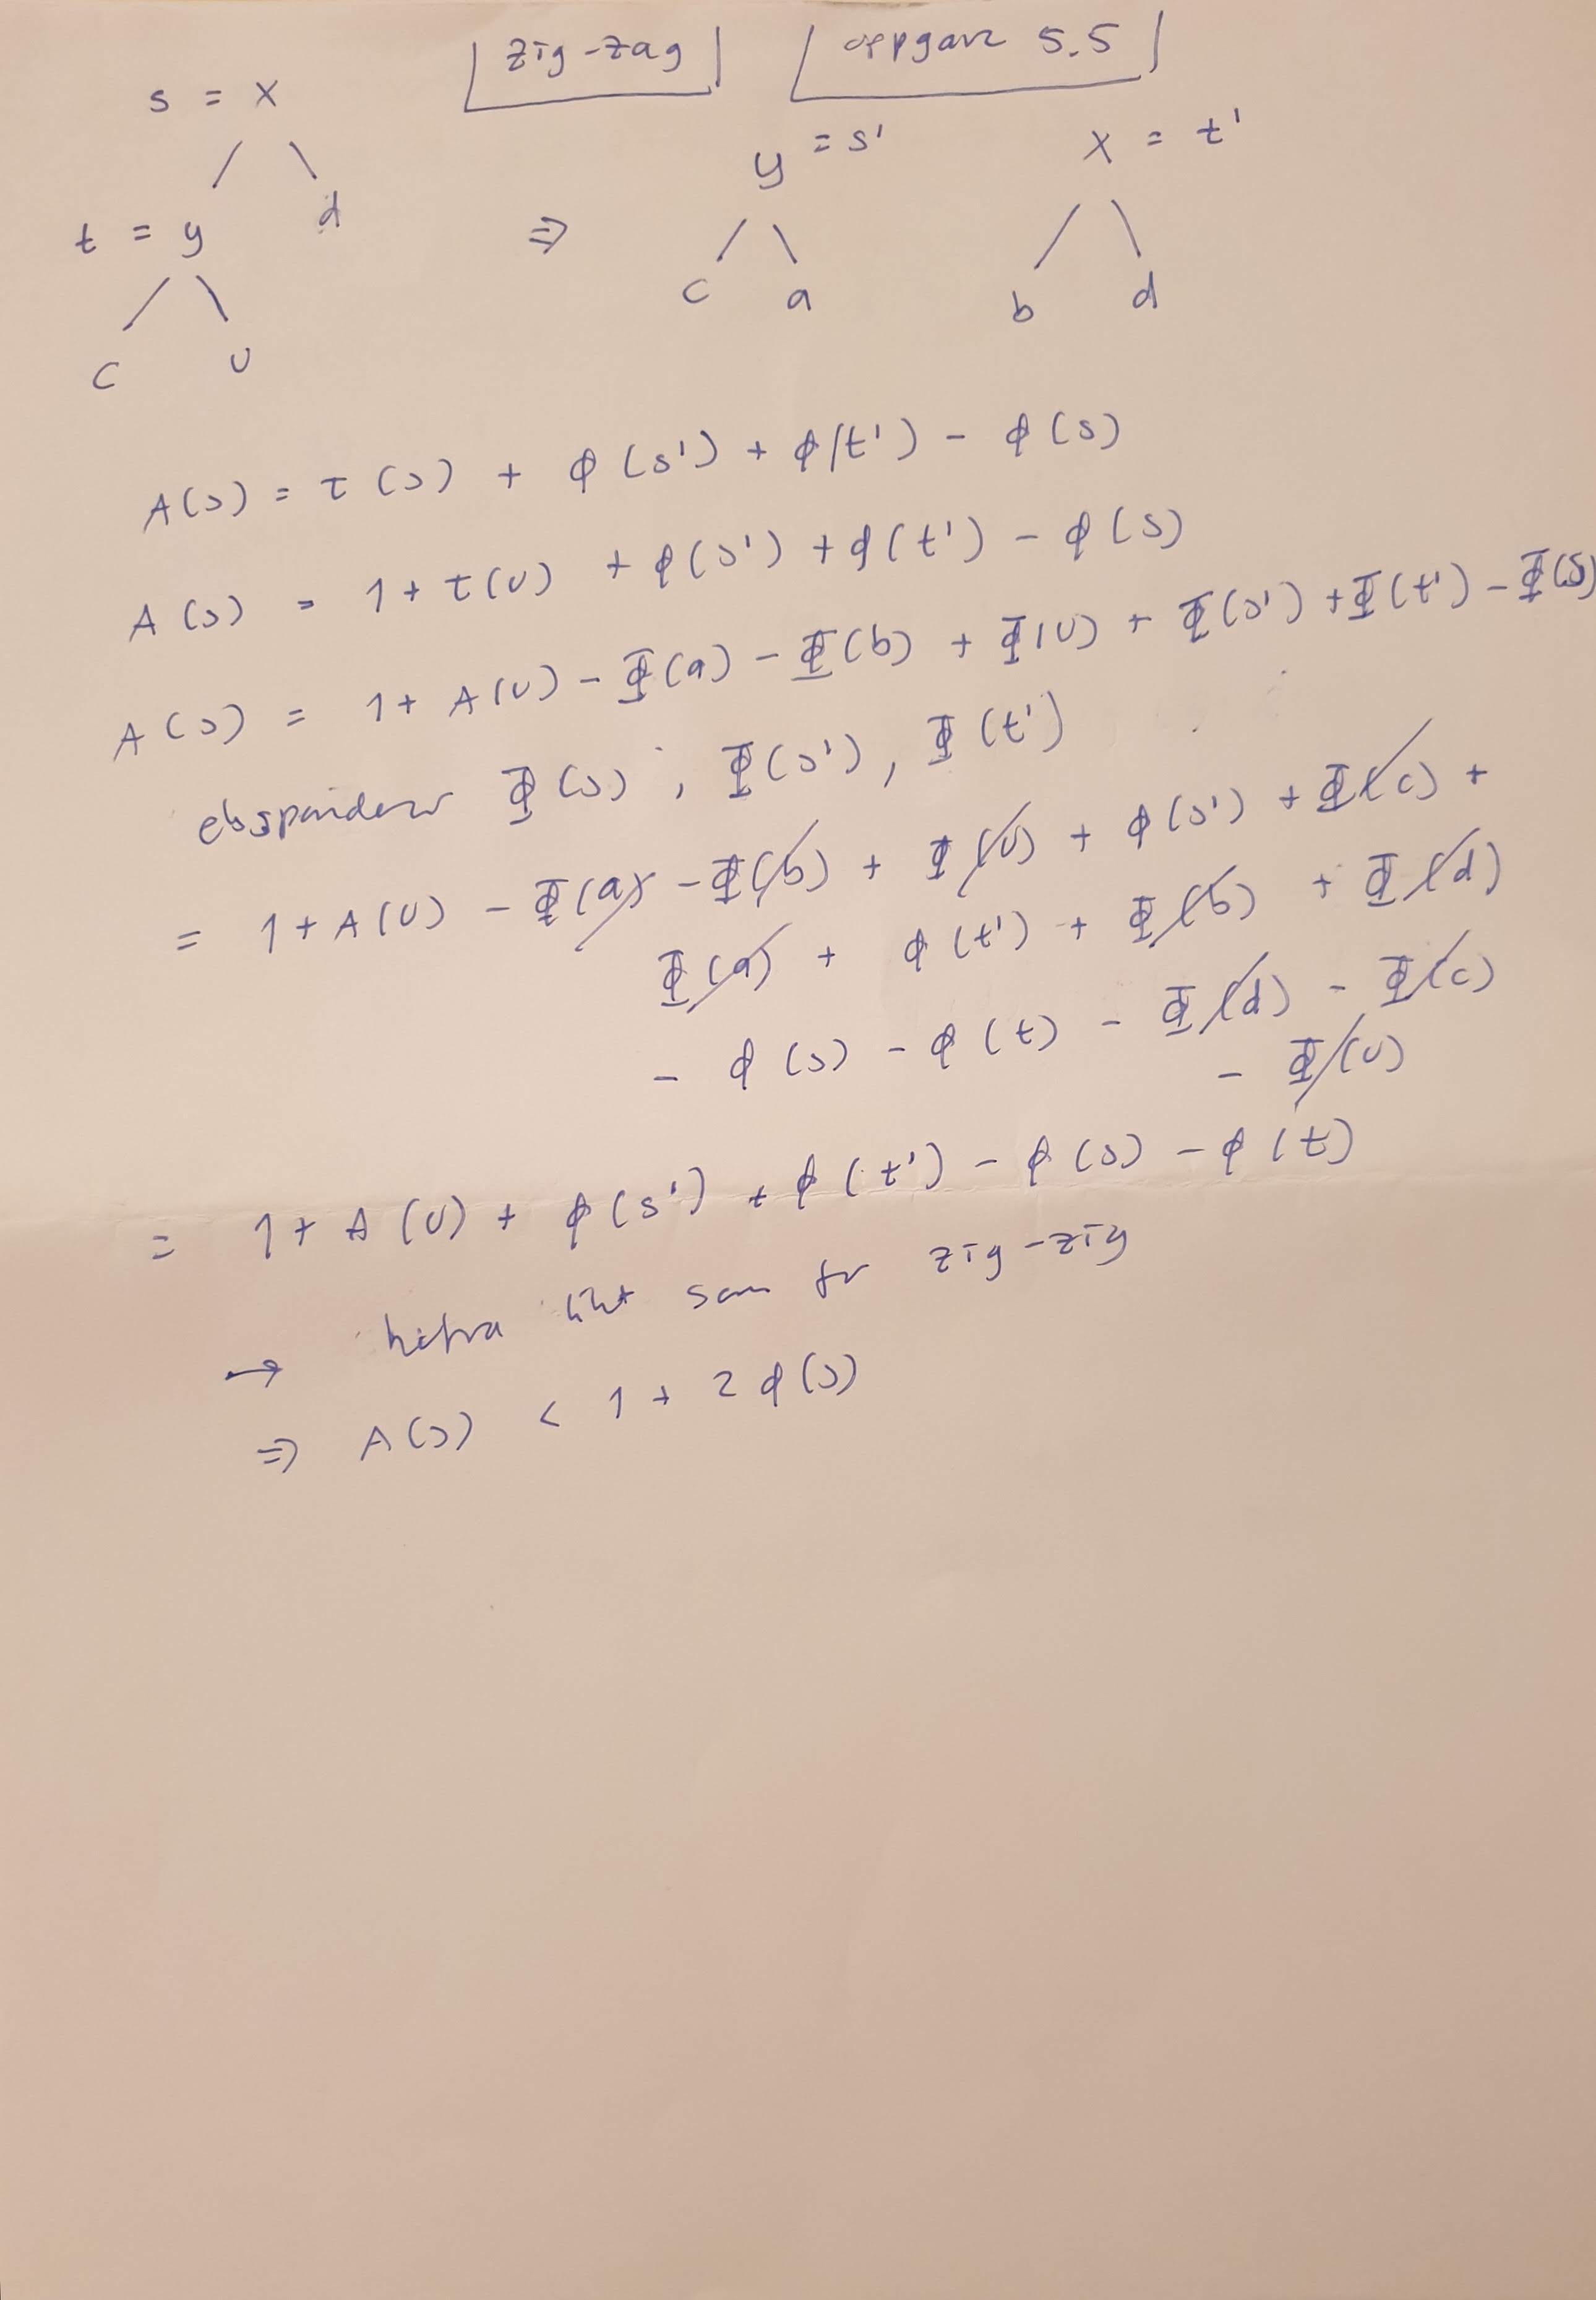 zig-zag oppgave 5.5
s = x
y = s'
x = t'
t = y
d
⇒
c a
b d
c u
A(s) = τ(s) + φ(s') + φ(t') - φ(s)
A(s) = 1 + τ(u) + φ(s') + φ(t') - φ(s)
A(s) = 1 + A(u) - Φ(a) - Φ(b) + Φ(u) + Φ(s') + Φ(t') - Φ(s)
ekspanderer Φ(s), Φ(s'), Φ(t')
= 1 + A(u) - Φ(a) - Φ(b) + Φ(u) + φ(s') + Φ(c) +
Φ(a) + φ(t') + Φ(b) + Φ(d)
- φ(s) - φ(t) - Φ(d) - Φ(c)
- Φ(u)
= 1 + A(u) + φ(s') + φ(t') - φ(s) - φ(t)
→ likt som for zig-zig
⇒ A(s) < 1 + 2φ(s)